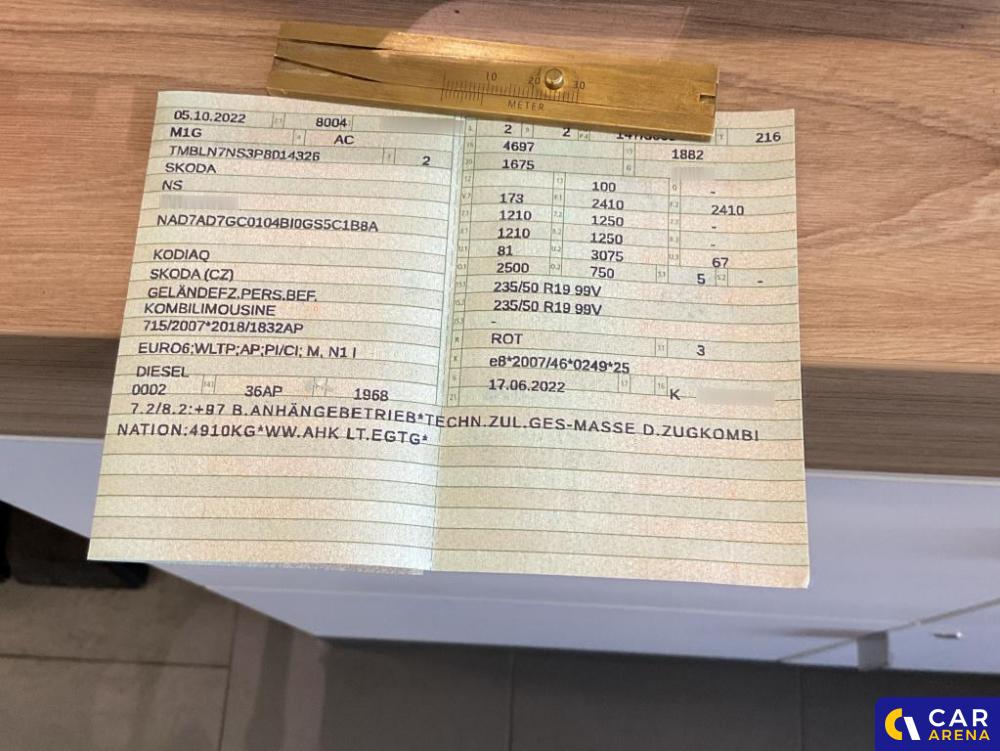 10 20 30
METER
05.10.2022 8004
M1G AC
TMBLN7NS3P8014326 2
SKODA
NS
NAD7AD7GC0104BI0GS5C1B8A
KODIAQ
SKODA (CZ)
GELÄNDEFZ.PERS.BEF.
KOMBILIMOUSINE
715/2007*2018/1832AP
EURO6;WLTP;AP;PI/CI; M, N1 I
DIESEL
0002 36AP 1968
2 2 216
4697 1882
1675
100 -
173 2410 2410
1210 1250 -
1210 1250 -
81 3075 67
2500 750 5 -
235/50 R19 99V
235/50 R19 99V
-
ROT 3
e8*2007/46*0249*25
17.06.2022 K
7.2/8.2:+97 B.ANHÄNGEBETRIEB*TECHN.ZUL.GES-MASSE D.ZUGKOMBI
NATION:4910KG*WW.AHK LT.EGTG*
CAR
ARENA